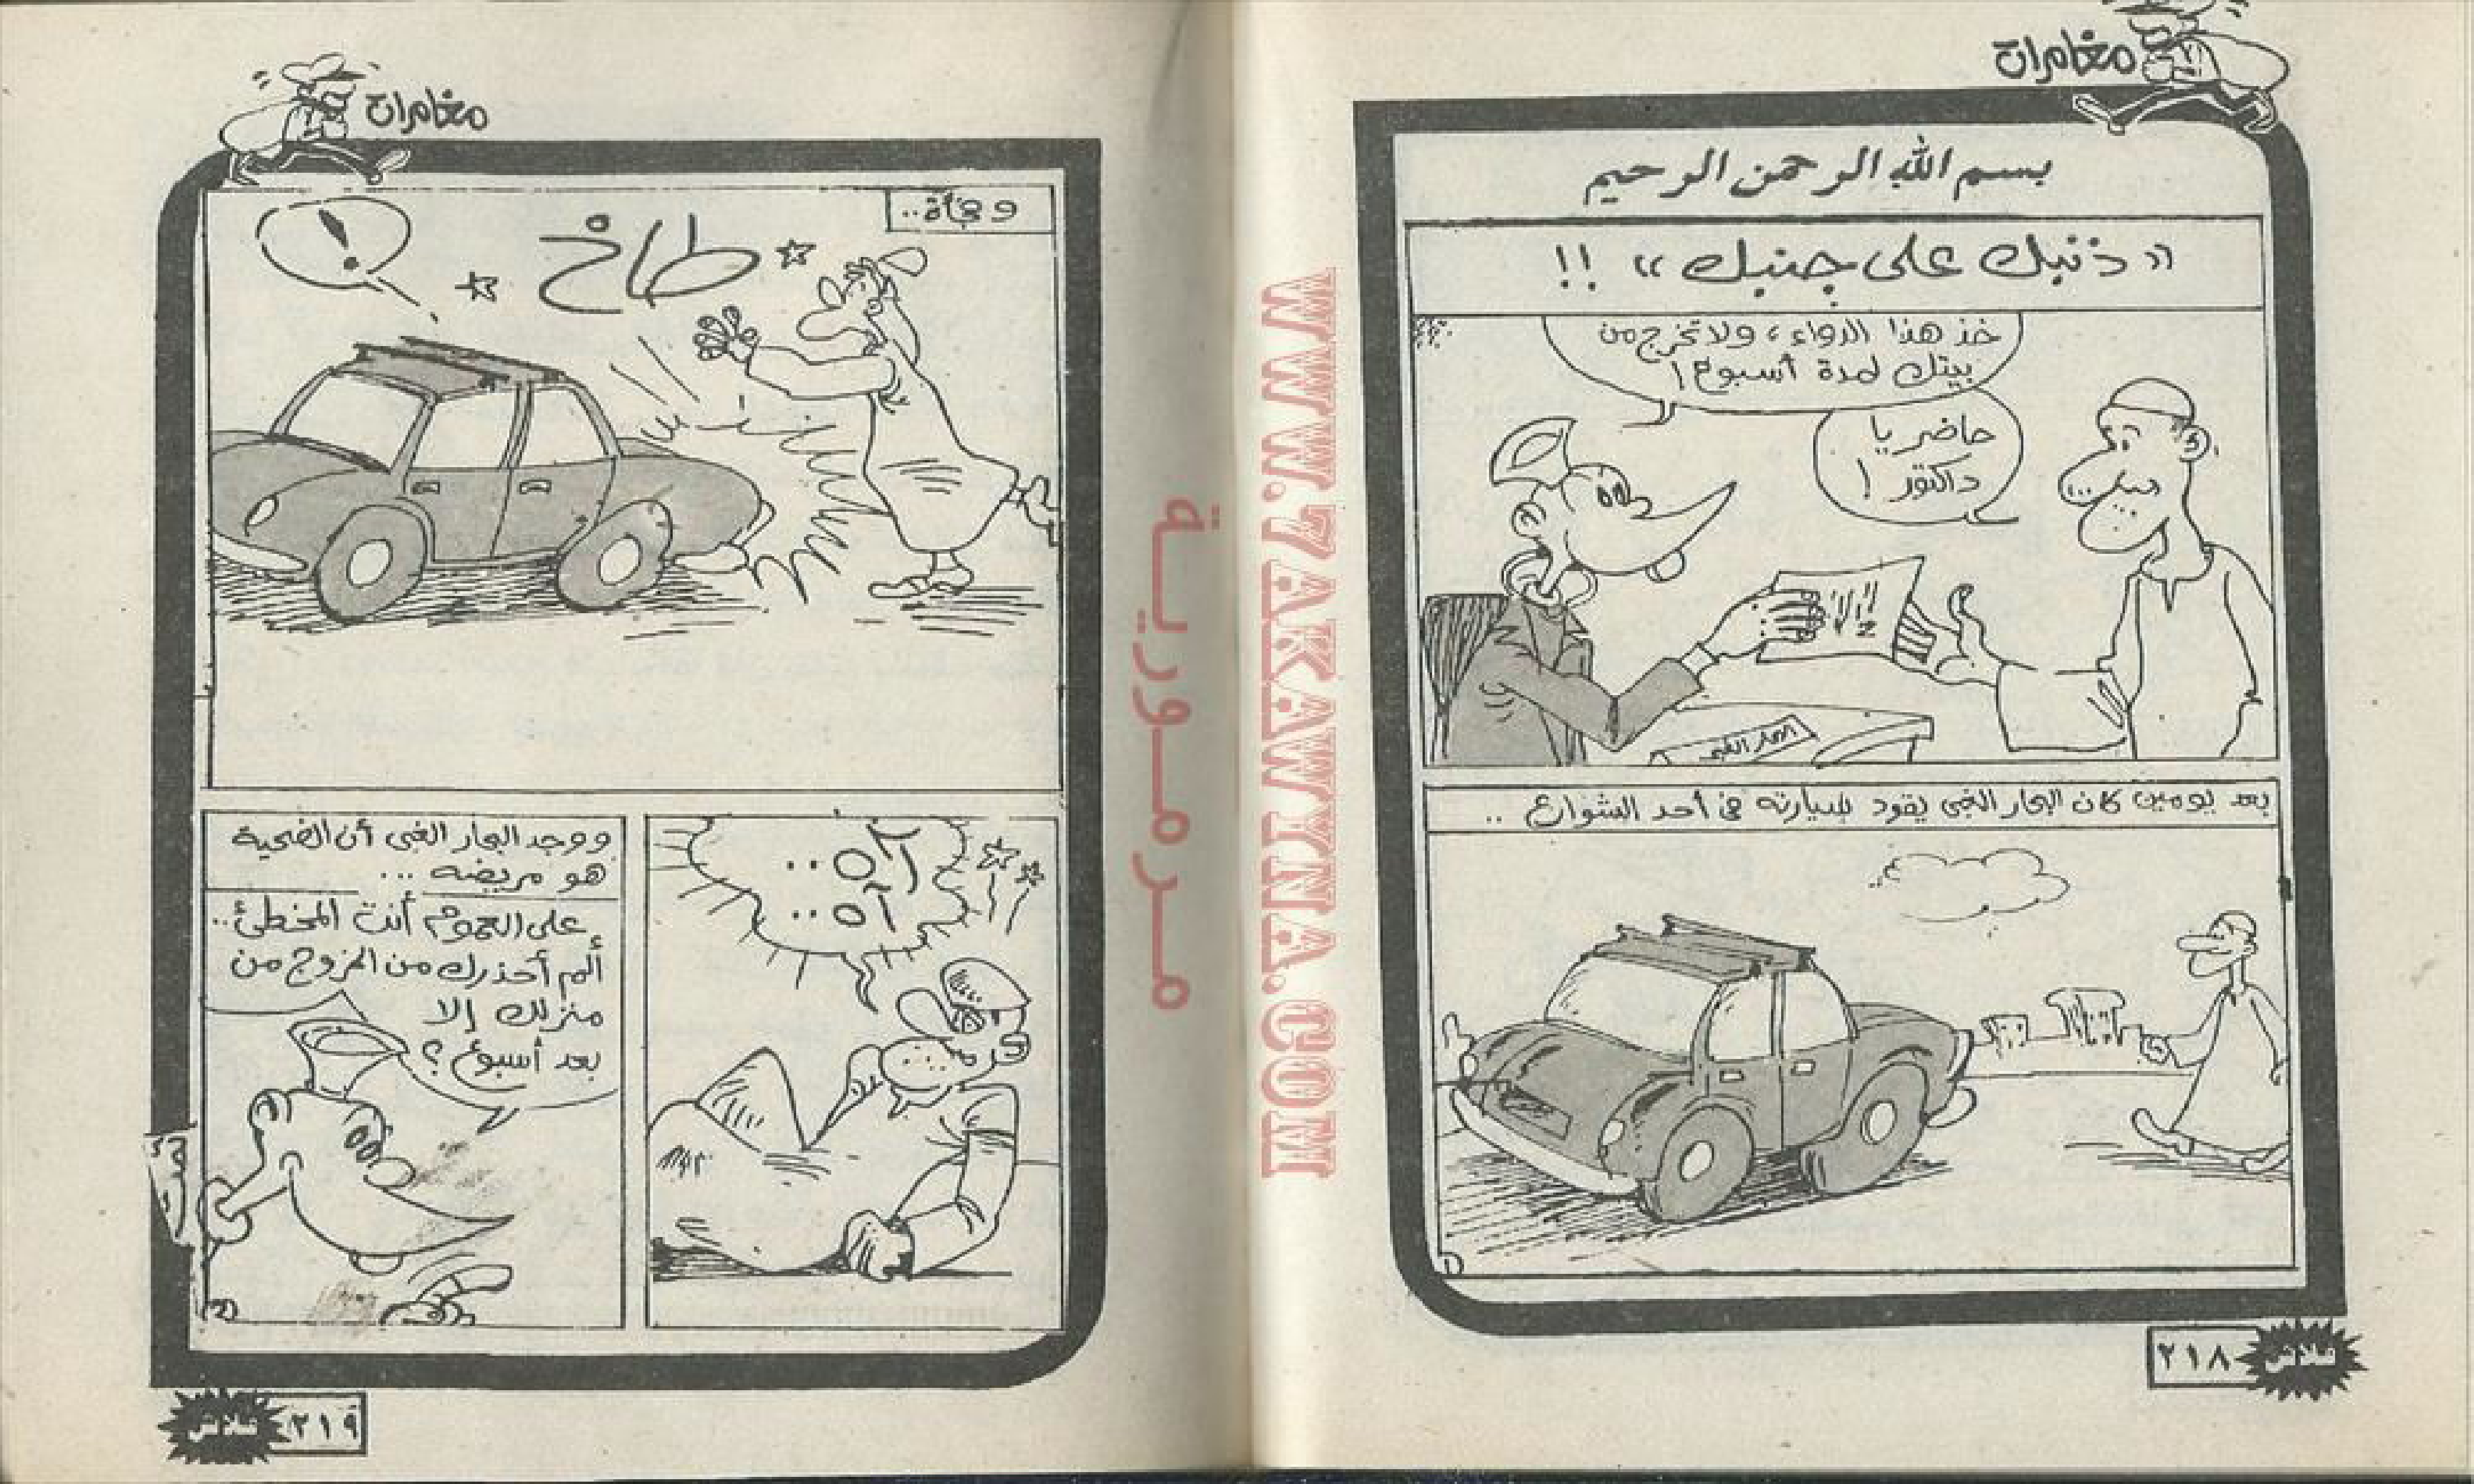 مغامرات
بسم الله الرحمن الرحيم
« ذنبك على جنبك » !!
خذ هذا الدواء ، ولا تخرج من
بيتك لمدة أسبوع !
حاضر يا
داكتور !
بعد يومين كان الحمار الغبى يقود سيارته فى أحد الشوارع ..
٢١٨
فلاش
مغامرات
وفجأة ..
طاخ
!
آه ..
آه ..
ووجد الحمار الغبى أن الضحية
هو مريضه ...
على العموم أنت المخطئ ..
ألم أحذرك من الخروج من
منزلك إلا
بعد أسبوع ؟
تمت
٢١٩
فلاش
WWW.7AKAWINA.COM
مرمورية